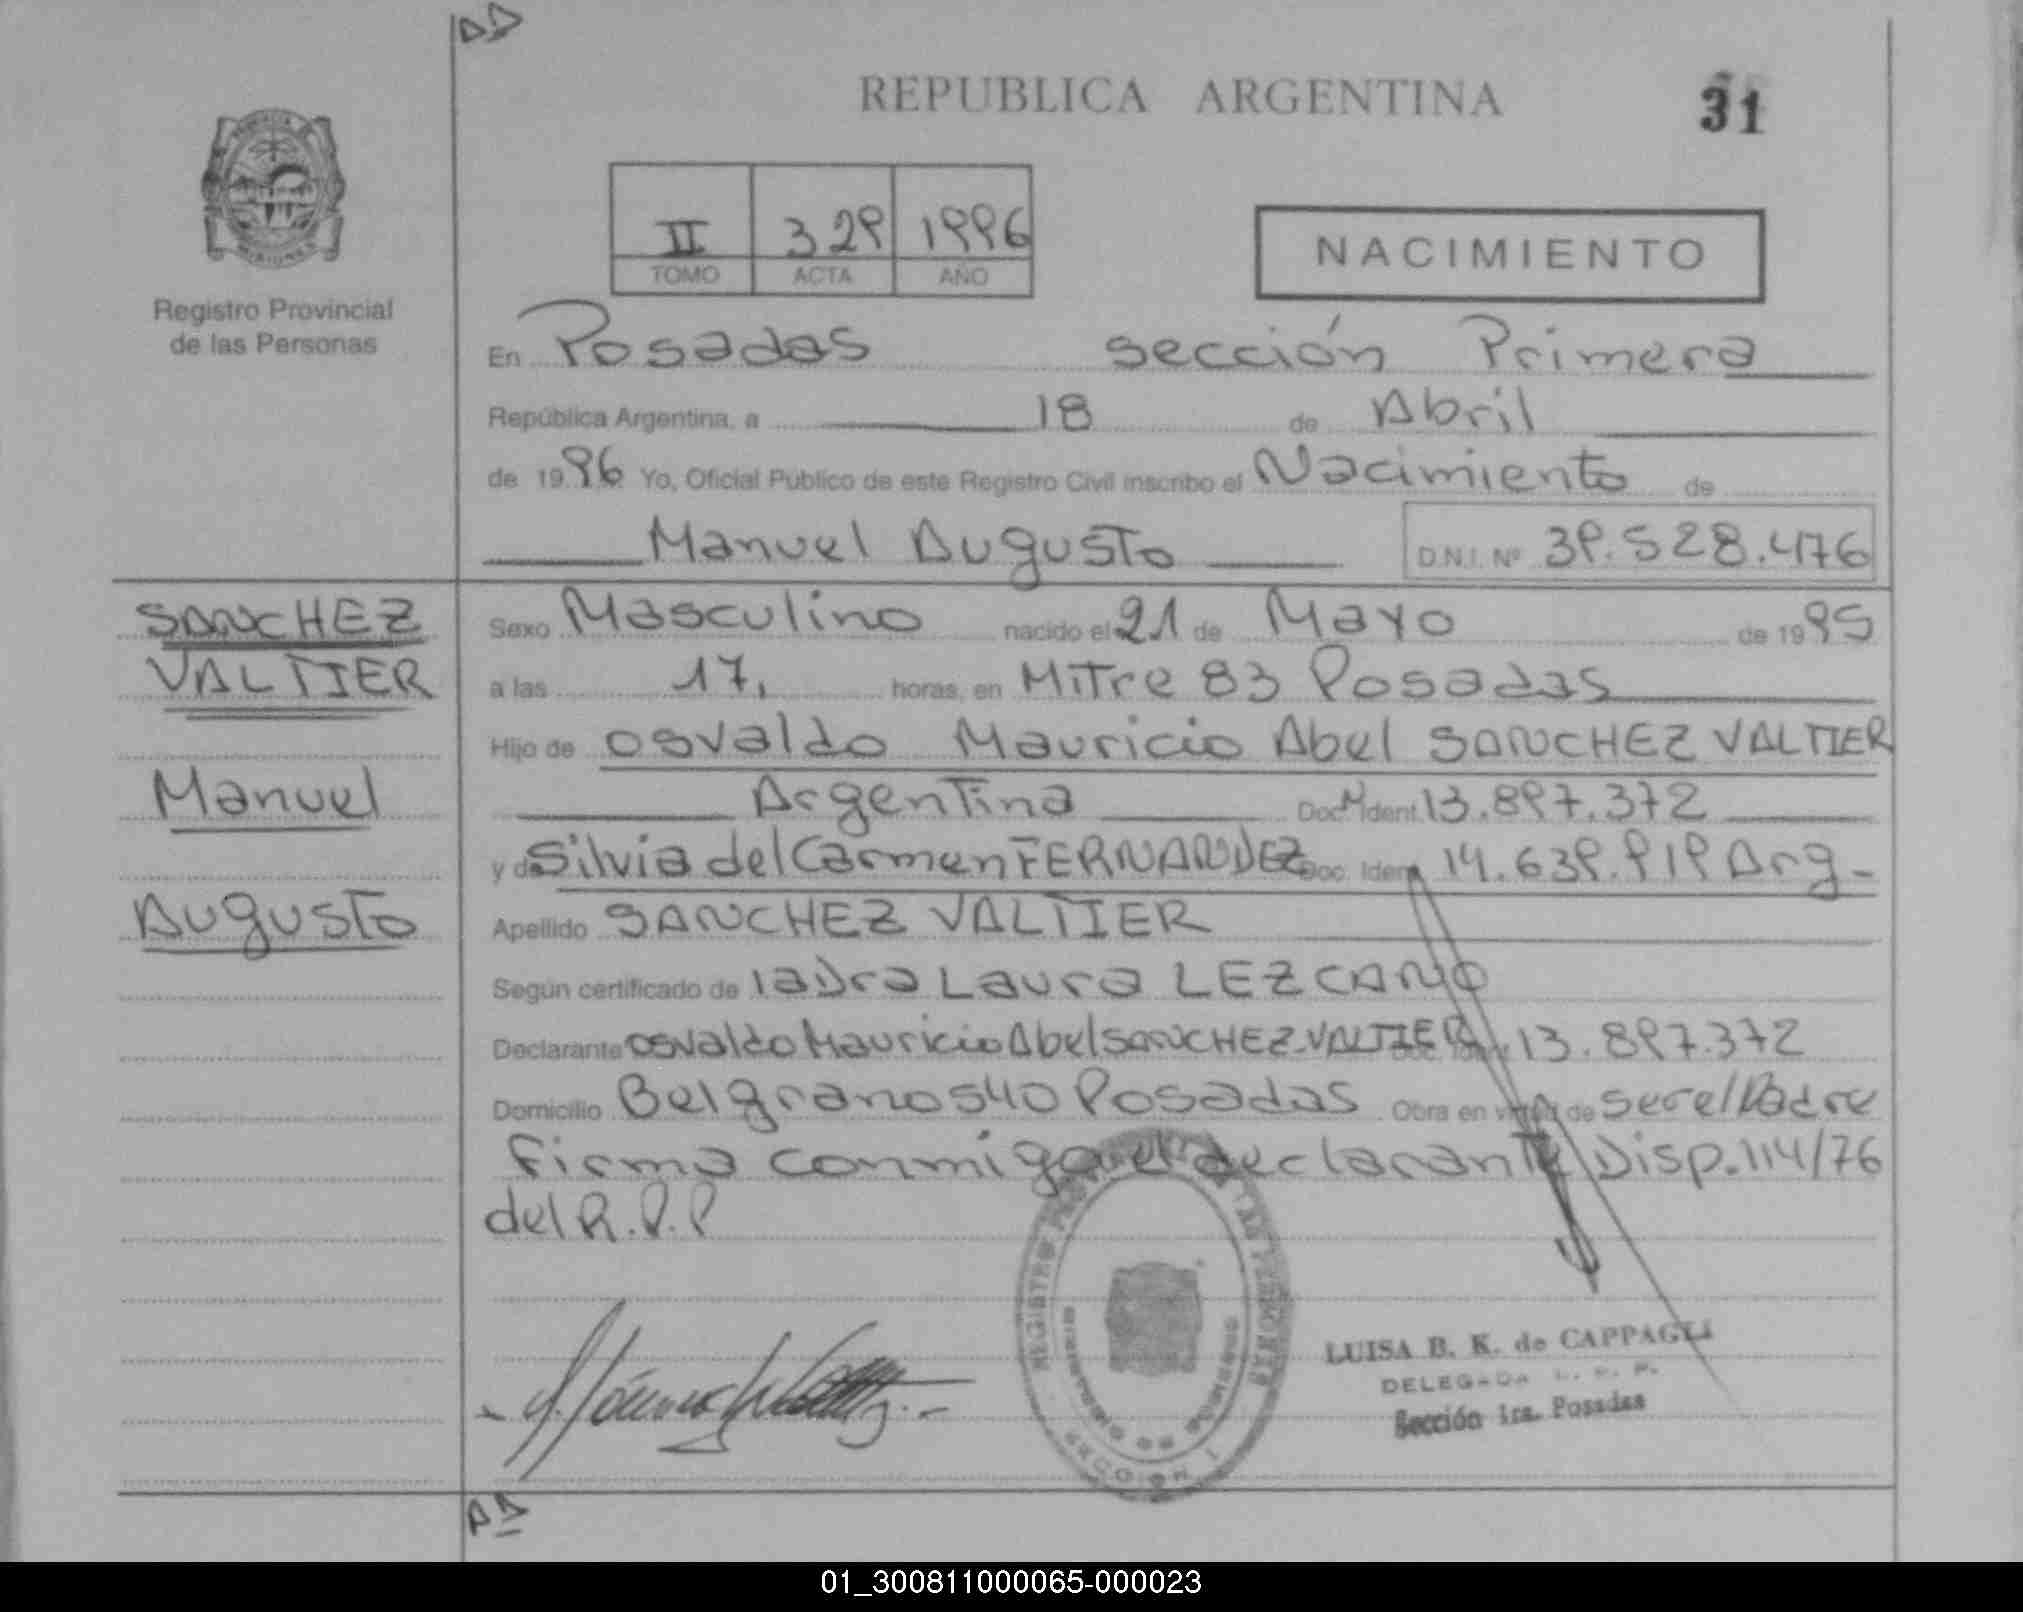 DD
REPUBLICA ARGENTINA
31
II 329 1996
TOMO ACTA AÑO
NACIMIENTO
Registro Provincial
de las Personas
En Posadas sección Primera
República Argentina, a 18 de Abril
de 1996 Yo, Oficial Público de este Registro Civil inscribo el Nacimiento de
Manuel Augusto D.N.I. Nº 39.528.476
SANCHEZ
VALTIER
Manuel
Augusto
Sexo Masculino nacido el 21 de Mayo de 1995
a las 17, horas, en Mitre 83 Posadas
Hijo de Osvaldo Mauricio Abel SANCHEZ VALTIER
Argentina Doc. M Ident. 13.897.372
y de Silvia del Carmen FERNANDEZ Doc. Ident. 14.639.919 Arg-
Apellido SANCHEZ VALTIER
Según certificado de la Dra Laura LEZCANO
Declarante Osvaldo Mauricio Abel SANCHEZ VALTIER Doc. Ident. 13.897.372
Domicilio Belgrano 540 Posadas Obra en virtud de ser el Padre
Firma conmigo el declarante Disp. 114/76
del R.P.P
REGISTRO PROVINCIAL DE LAS PERSONAS
LUISA B. K. de CAPPAGLI
DELEGADA R. P. P.
Sección 1ra. Posadas
01_300811000065-000023